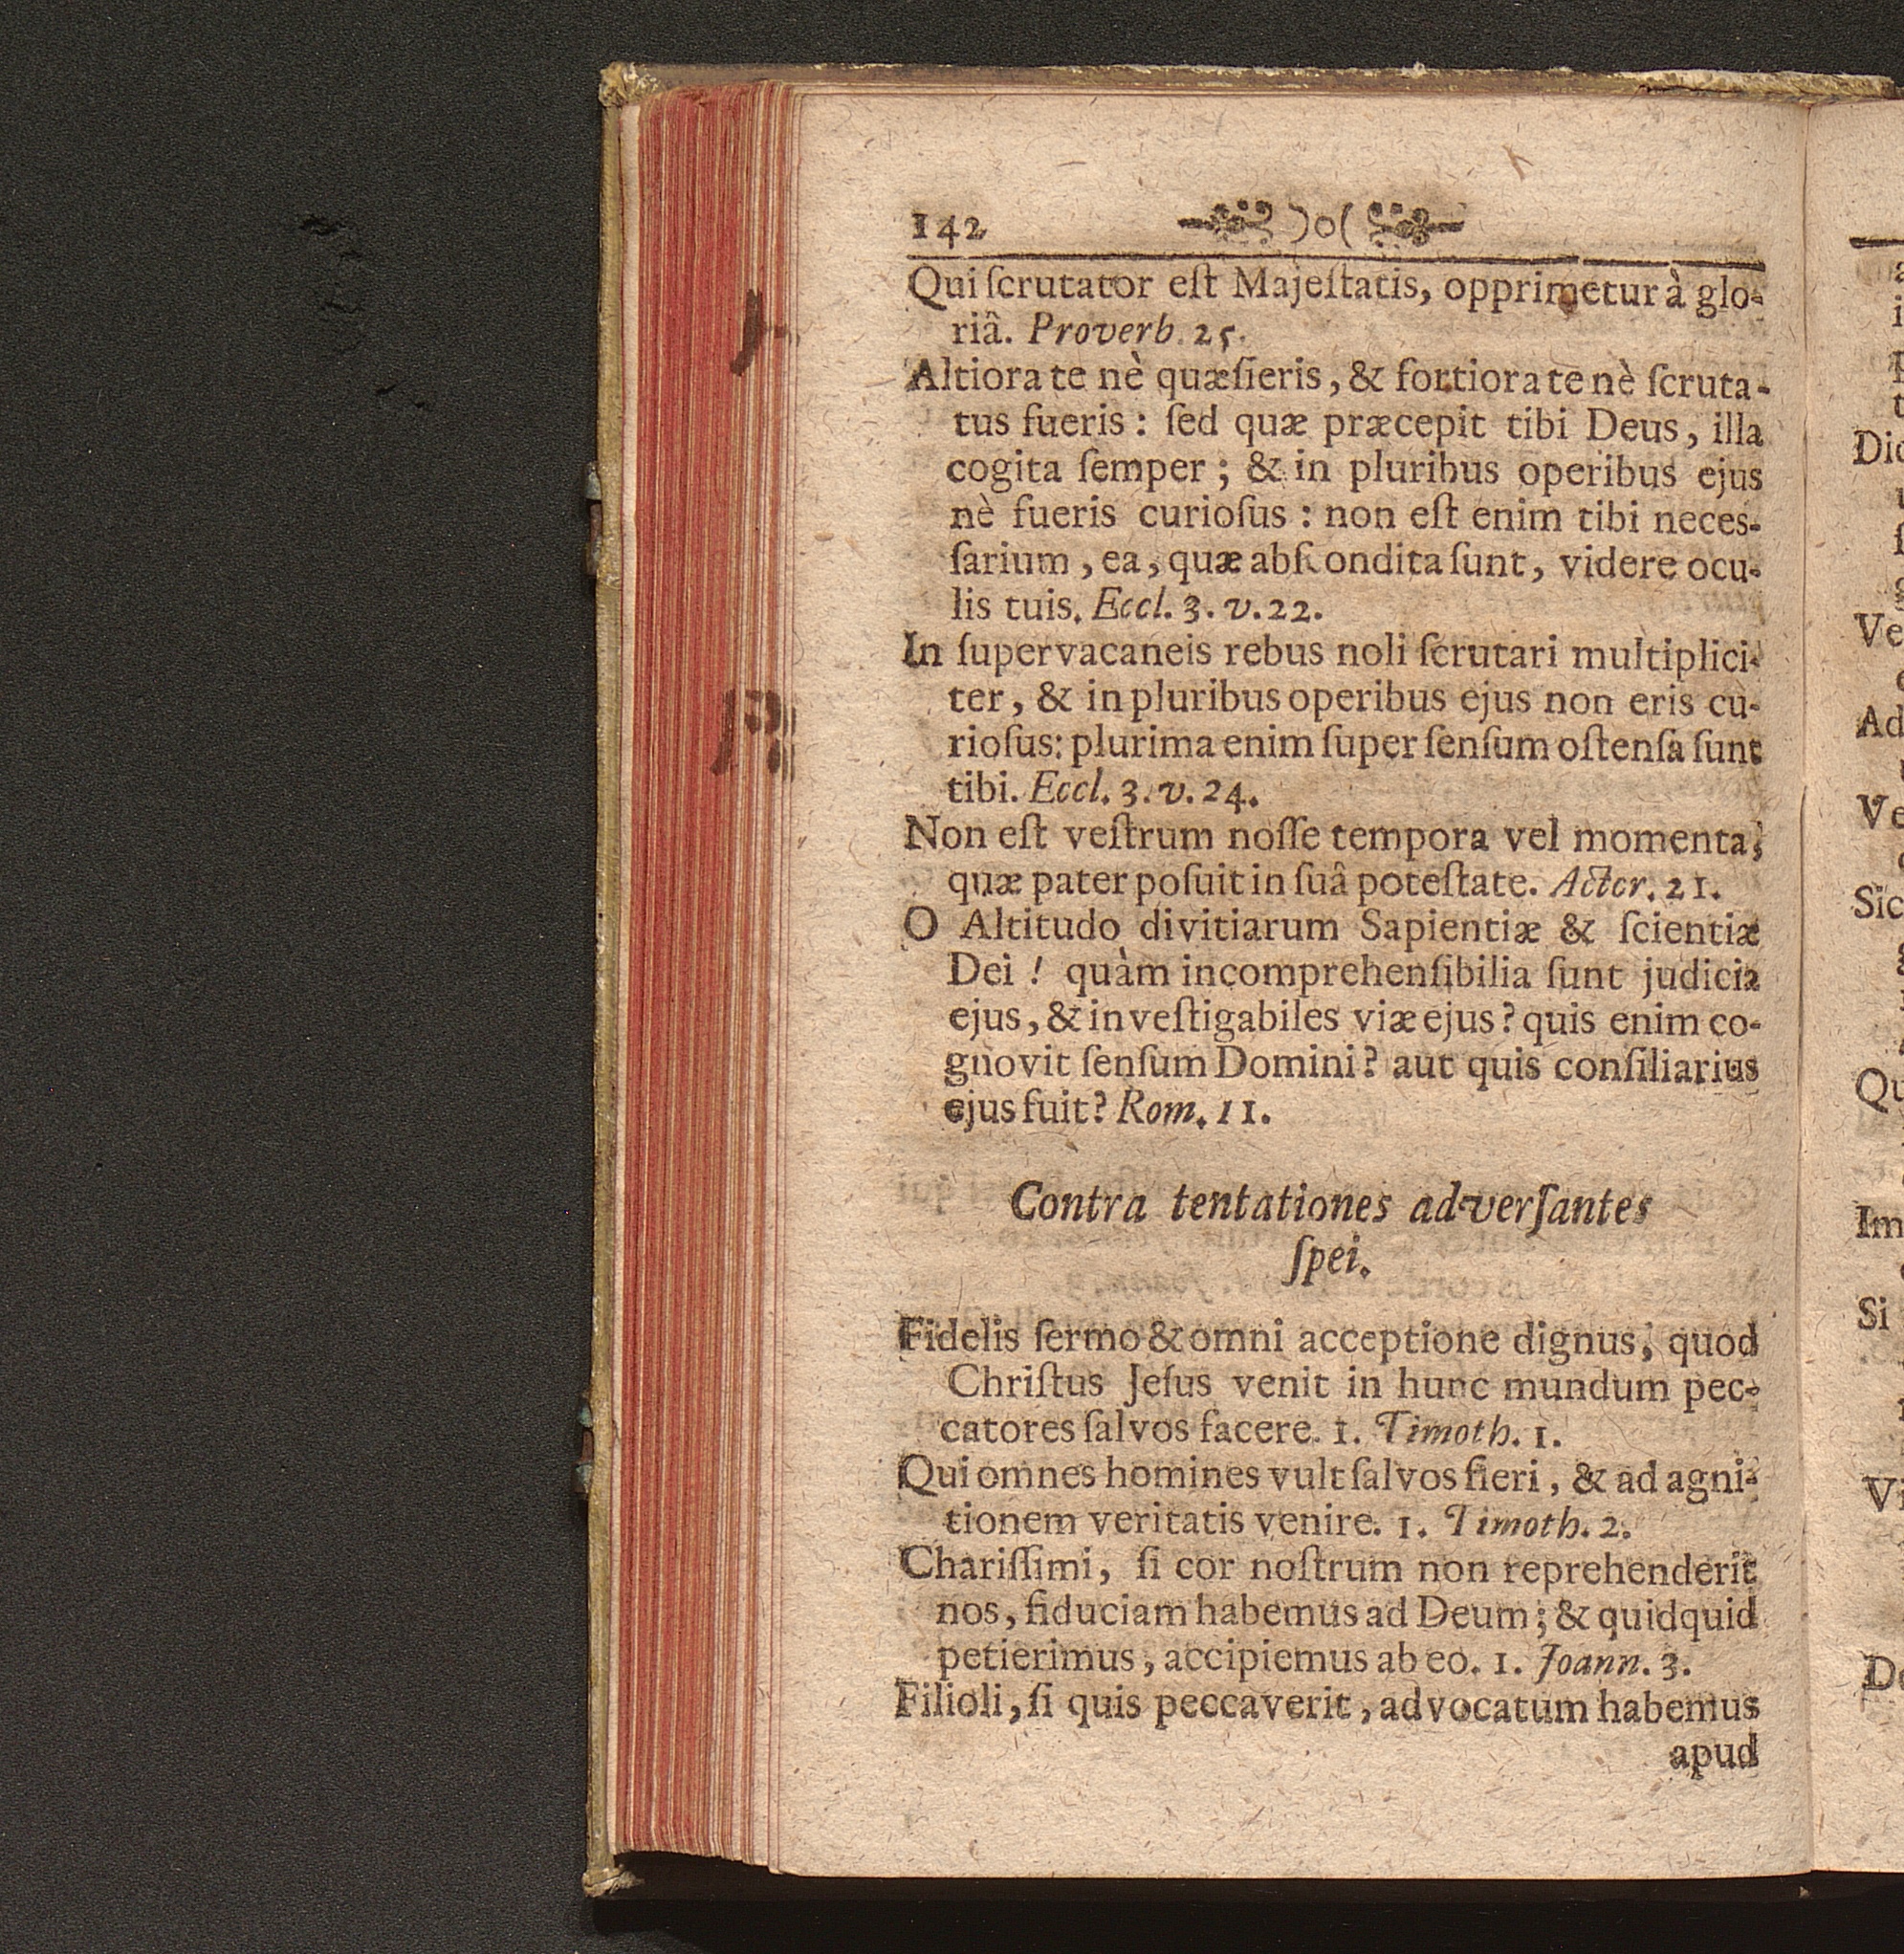 142 )o(
Qui ſcrutator eſt Majeſtatis, opprimetur à glo-
riâ. Proverb. 25.
Altiora te nè quæſieris, & fortiora te nè ſcruta-
tus fueris: ſed quæ præcepit tibi Deus, illa
cogita ſemper; & in pluribus operibus ejus
nè fueris curioſus: non eſt enim tibi neces-
ſarium, ea, quæ abſcondita ſunt, videre ocu-
lis tuis. Eccl. 3. v. 22.
In ſupervacaneis rebus noli ſcrutari multiplici-
ter, & in pluribus operibus ejus non eris cu-
rioſus: plurima enim ſuper ſenſum oſtenſa ſunt
tibi. Eccl. 3. v. 24.
Non eſt veſtrum noſſe tempora vel momenta,
quæ pater poſuit in ſuâ poteſtate. Actor. 21.
O Altitudo divitiarum Sapientiæ & ſcientiæ
Dei! quàm incomprehenſibilia ſunt judicia
ejus, & inveſtigabiles viæ ejus? quis enim co-
gnovit ſenſum Domini? aut quis conſiliarius
ejus fuit? Rom. 11.
Contra tentationes adverſantes
ſpei.
Fidelis ſermo & omni acceptione dignus, quod
Chriſtus Jeſus venit in hunc mundum pec-
catores ſalvos facere. 1. Timoth. 1.
Qui omnes homines vult ſalvos fieri, & ad agni-
tionem veritatis venire. 1. Timoth. 2.
Chariſſimi, ſi cor noſtrum non reprehenderit
nos, fiduciam habemus ad Deum; & quidquid
petierimus, accipiemus ab eo. 1. Joann. 3.
Filioli, ſi quis peccaverit, advocatum habemus
apud
Did
Ve
Ad
Ve
Sic
Qu
Im
Si
Vi
De